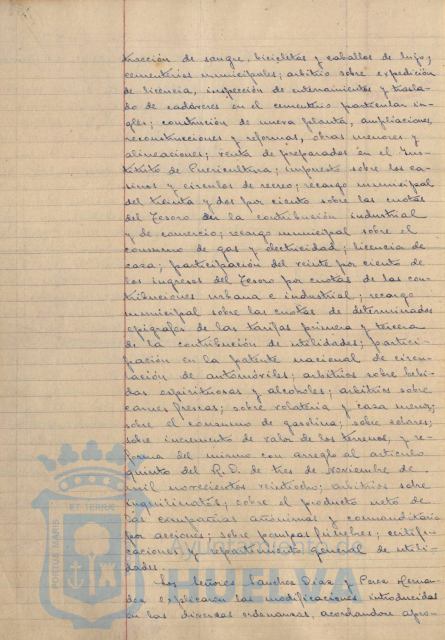 tracción de sangre, bicicletas y caballos de lujo;
cementerios municipales; arbitrio sobre expedición
de licencia, inspección de enterramientos y trasla-
do de cadáveres en el cementerio particular in-
glés; construcción de nueva planta, ampliaciones,
reconstrucciones y reformas, obras menores y
alineaciones; venta de preparados en el Ins-
tituto de Puericultura; impuesto sobre los ca-
sinos y círculos de recreo; recargo municipal
del treinta y dos por ciento sobre las cuotas
del Tesoro en la contribución industrial
y de comercio; recargo municipal sobre el
consumo de gas y electricidad; licencia de
caza; participación del veinte por ciento de
los ingresos del Tesoro por cuotas de las con-
tribuciones urbana e industrial; recargo
municipal sobre las cuotas de determinados
epígrafes de las tarifas primera y tercera
de la contribución de utilidades; partici-
pación en la patente nacional de circu-
lación de automóviles; arbitrios sobre bebi-
das espirituosas y alcoholes; arbitrios sobre
carnes frescas; sobre volatería y caza menor;
sobre el consumo de gasolina; sobre solares;
sobre incremento de valor de los terrenos, y re-
forma del mismo con arreglo al artículo
quinto del R.D. de tres de Noviembre de
mil novecientos veintiocho; arbitrios sobre
inquilinatos; sobre el producto neto de
las compañías anónimas y comanditarias
por acciones; sobre pompas fúnebres; certifi-
caciones y repartimiento general de utili-
dades.
Los Señores Sanchez Diaz y Perez Hernan-
dez explicaron las modificaciones introducidas
en las diversas ordenanzas, acordándose apro-
PORTUS MARIS ET TERRE
HUELVA